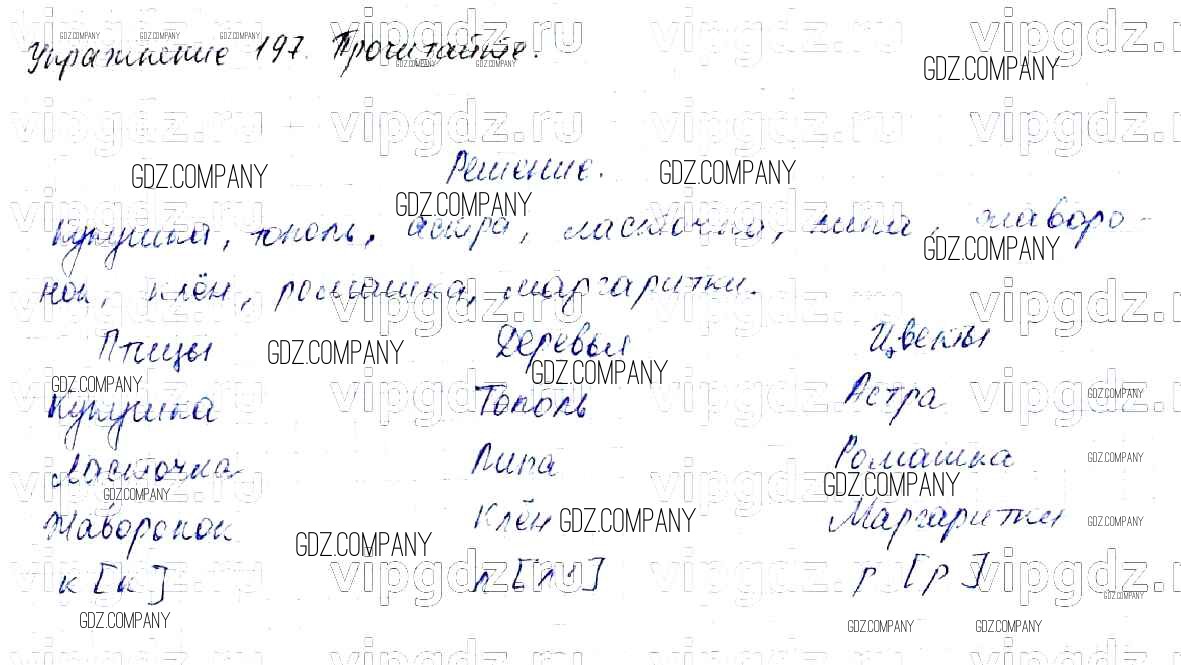 Упражнение 197. Прочитайте.
Решение.
Кукушка, тополь, астра, ласточка, липа, жаворо-
нок, клён, ромашка, маргаритки.
Птицы Деревья Цветы
Кукушка Тополь Астра
Ласточка Липа Ромашка
Жаворонок Клён Маргаритки
к [к] л [л'] р [р]
vipgdz.ru
GDZ.COMPANY